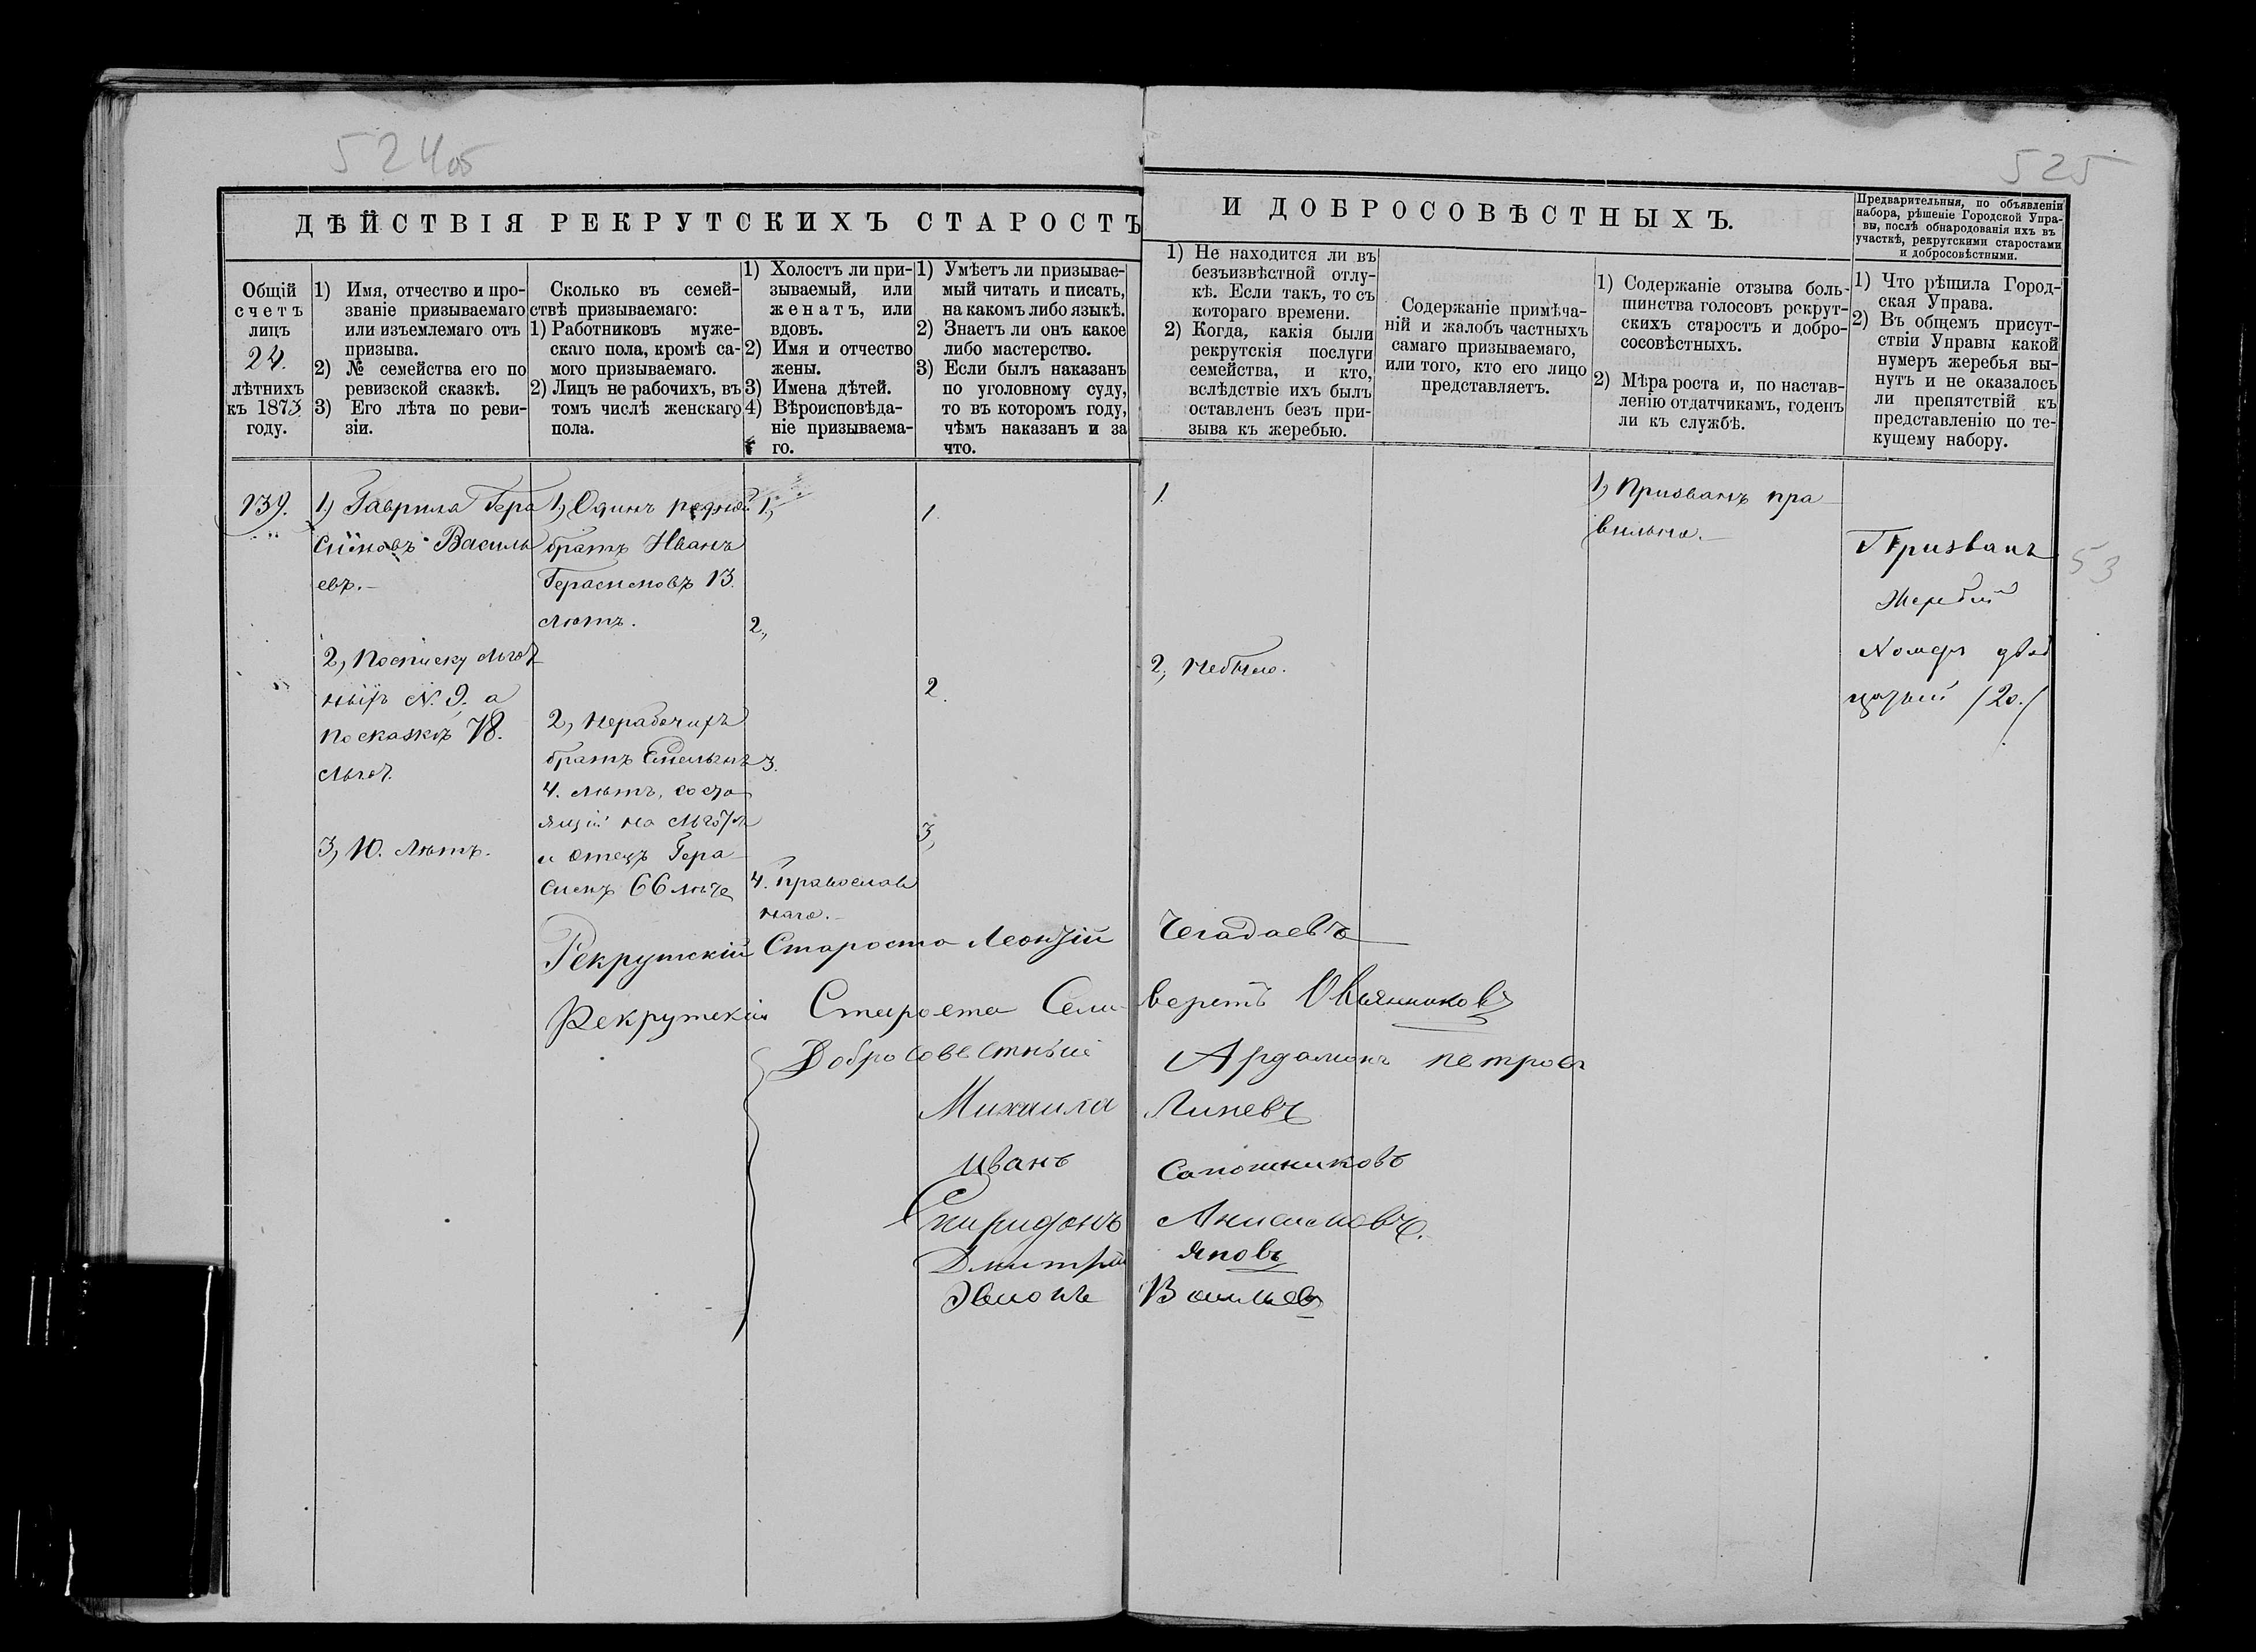 524 об
525
ДѢЙСТВІЯ РЕКРУТСКИХЪ СТАРОСТЪ
И ДОБРОСОВѢСТНЫХЪ.
Предварительныя, по объявленіи
набора, рѣшеніе Городской Упра-
вы, послѣ обнародованія ихъ въ
участкѣ, рекрутскими старостами
и добросовѣстными.
Общій
счетъ
лицъ
24.
лѣтнихъ
къ 1873
году.
1) Имя, отчество и про-
званіе призываемаго
или изъемлемаго отъ
призыва.
2) № семейства его по
ревизской сказкѣ.
3) Его лѣта по реви-
зіи.
Сколько въ семей-
ствѣ призываемаго:
1) Работниковъ муже-
скаго пола, кромѣ са-
мого призываемаго.
2) Лицъ не рабочихъ, въ
томъ числѣ женскаго
пола.
1) Холостъ ли при-
зываемый, или
женатъ, или
вдовъ.
2) Имя и отчество
жены.
3) Имена дѣтей.
4) Вѣроисповѣда-
ніе призываема-
го.
1) Умѣетъ ли призывае-
мый читать и писать,
на какомъ либо языкѣ.
2) Знаетъ ли онъ какое
либо мастерство.
3) Если былъ наказанъ
по уголовному суду,
то въ которомъ году,
чѣмъ наказанъ и за
что.
1) Не находится ли въ
безъизвѣстной отлу-
кѣ. Если такъ, то съ
котораго времени.
2) Когда, какія были
рекрутскія послуги
семейства, и кто,
вслѣдствіе ихъ былъ
оставленъ безъ при-
зыва къ жеребью.
Содержаніе примѣча-
ній и жалобъ частныхъ
самаго призываемаго,
или того, кто его лицо
представляетъ.
1) Содержаніе отзыва боль-
шинства голосовъ рекрут-
скихъ старостъ и добро-
сосовѣстныхъ.
2) Мѣра роста и, по настав-
ленію отдатчикамъ, годенъ
ли къ службѣ.
1) Что рѣшила Город-
ская Управа.
2) Въ общемъ присут-
ствіи Управы какой
нумеръ жеребья вы-
нутъ и не оказалось
ли препятствій къ
представленію по те-
кущему набору.
139.
1) Гаврила Гера
симовъ Василь
евъ.
2) По списку льгот
ныхъ №. 9. а
по сказкѣ 78.
льгот.
3) 10. лѣтъ.
1) Одинъ родной
братъ Иванъ
Герасимовъ 13.
лѣтъ.
2) Нерабочихъ
братъ Емельянъ
4. лѣтъ, состо
ящій на льготѣ
и отецъ Гера-
симъ 66 лѣтъ
1,
2,
3.
4. Православ
наго.
1.
2.
3,
1.
2, Небыло.
1) Призванъ пра
вильно.
Призванъ
Жеребій
Номеръ двад
цатый /20./
53
Рекрутскій Староста Леонтій Чегадаевъ
Рекрутскій Староста Сели-верстъ Овсянниковъ
Добросовестные Ардамонъ петровъ
Михаила Линевъ
Иванъ Сапошниковъ
Спиридонъ Анисимовъ.
Дмитрій Яповъ
Васильев